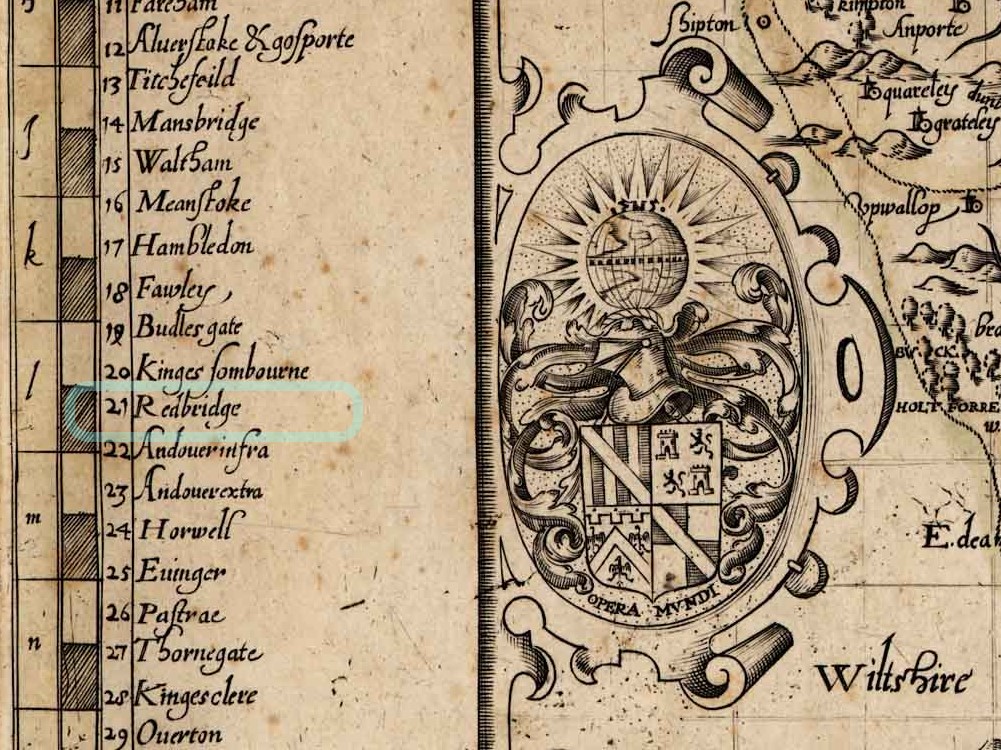 11 Fareham
12 Aluerstoke & gosporte
13 Titchefeild
14 Mansbridge
15 Waltham
16 Meanstoke
17 Hambledon
18 Fawley
19 Budles gate
20 Kinges sombourne
21 Redbridge
22 Andouer infra
23 Andouer extra
24 Horwell
25 Euinger
26 Pastrae
27 Thornegate
28 Kingesclere
29 Ouerton
k
l
m
n
Shipton
kimpton
Anporte
quareley
grateley
vpwallop
HOLT FORRE
E. dea
OPERA MVNDI
Wiltshire